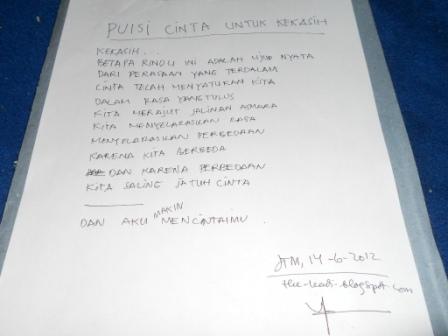 PUISI CINTA UNTUK KEKASIH
KEKASIH...
BETAPA RINDU INI ADALAH WUJUD NYATA
DARI PERASAAN YANG TERDALAM
CINTA TELAH MENYATUKAN KITA
DALAM RASA YANG TULUS
KITA MERAJUT JALINAN ASMARA
KITA MENYELARASKAN RASA
MENYELARASKAN PERBEDAAN
KARENA KITA BERBEDA
DAN KARENA PERBEDAAN
KITA SALING JATUH CINTA
DAN AKU MAKIN MENCINTAIMU.
JTM, 14-6-2012